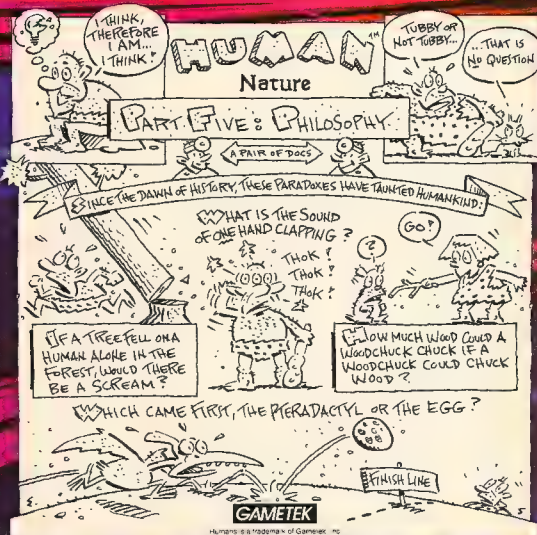 I THINK,
THEREFORE
I AM...
I THINK!
HUMAN™
Nature
TUBBY OR
NOT TUBBY...
...THAT IS
NO QUESTION
PART FIVE: PHILOSOPHY
A PAIR OF DOCS
SINCE THE DAWN OF HISTORY, THESE PARADOXES HAVE TAUNTED HUMANKIND:
WHAT IS THE SOUND
OF ONE HAND CLAPPING?
THOK!
THOK!
THOK!
?
GO!
IF A TREE FELL ON A
HUMAN ALONE IN THE
FOREST, WOULD THERE
BE A SCREAM?
HOW MUCH WOOD COULD A
WOODCHUCK CHUCK IF A
WOODCHUCK COULD CHUCK
WOOD?
WHICH CAME FIRST, THE PTERADACTYL OR THE EGG?
FINISH LINE
GAMETEK
Humans is a trademark of Gametek, Inc.